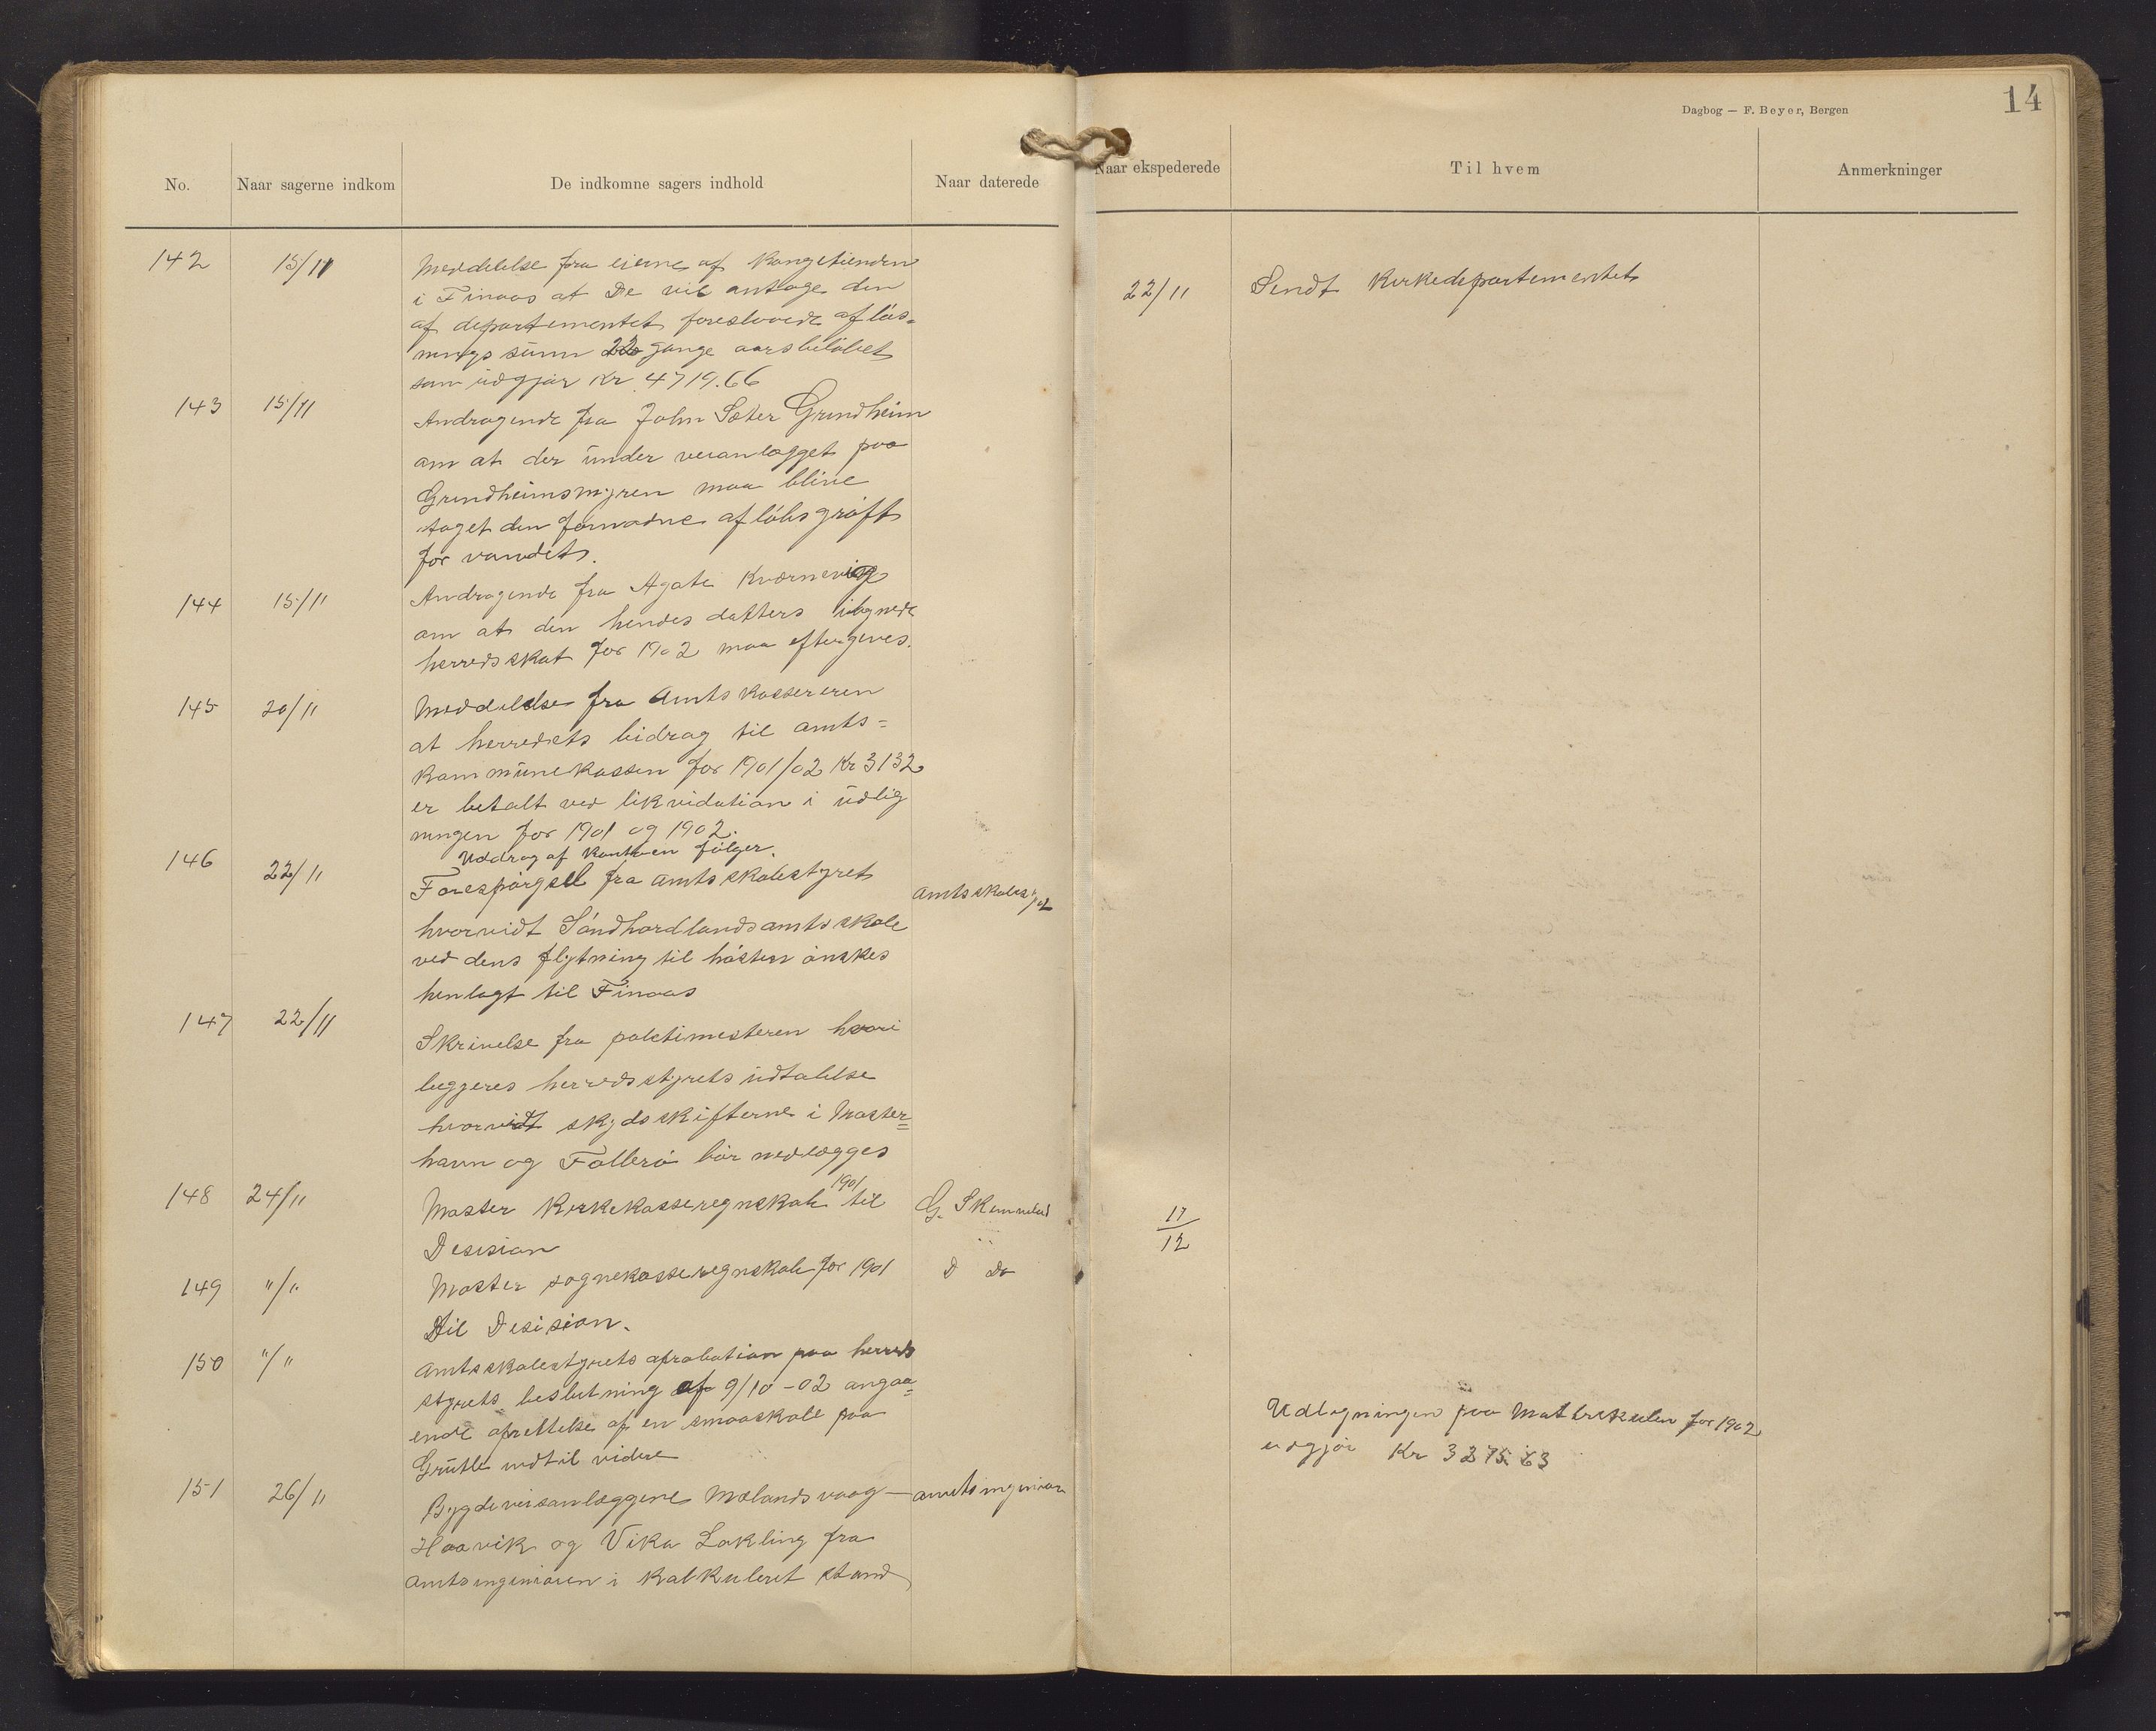 Dagbog — F. Beyer, Bergen
14
No.
Naar sagerne indkom
De indkomne sagers indhold
Naar daterede
Naar ekspederede
Til hvem
Anmerkninger
142 15/11 Meddelelse fra eierne af Kongetienden
i Finaas at De vil antage den
af departementet foreslaaede afløs=
nings sum 22 gange aarsbeløbet
som udgjør Kr 4719.66
22/11 Sendt Kirkedepartementet
143 15/11 Andragende fra John Sæter Grindheim
om at der under veianlægget paa
Grindheimsmyren maa blive
taget den fornødne afløbsgrøft
for vandet.
144 15/11 Andragende fra Agate Kværnevig
om at den hendes datters ilignede
herredsskat for 1902 maa eftergives.
145 20/11 Meddelelse fra Amtskassereren
at herredets bidrag til amts=
kommunekassen for 1901/02 Kr 3132
er betalt ved likvidation i udlig
ningen for 1901 og 1902.
Uddrag af Kontoen følger.
146 22/11 Forespørgsel fra amtsskolestyret Amtsskolestyret
hvorvidt Søndhordlands amtsskole
ved dens flytning til høsten ønskes
henlagt til Finaas
147 22/11 Skrivelse fra politimesteren hvori
beggeres herredsstyrets udtalelse
hvorvidt skydsskifterne i Moster=
havn og Folderø bør nedlægges
148 24/11 Moster Kirkekasseregnskab 1901 til G. Skimmeland
Desision
17/12
149 "/" Moster sognekasseregnskab for 1901 D Do
Til Desision.
150 "/" Amtsskolestyrets aprobation paa herreds
styrets beslutning af 9/10-02 angaa=
ende oprettelse af en smaaskole paa
Grutle indtil videre
Udligningen paa Matrikulen for 1902
udgjør Kr 3275.63
151 26/11 Bygdeveisanlæggene Mælandsvaag — amtsingeniør
Haavik og Vika Løkling fra
Amtsingeniøren i kalkuleret stand